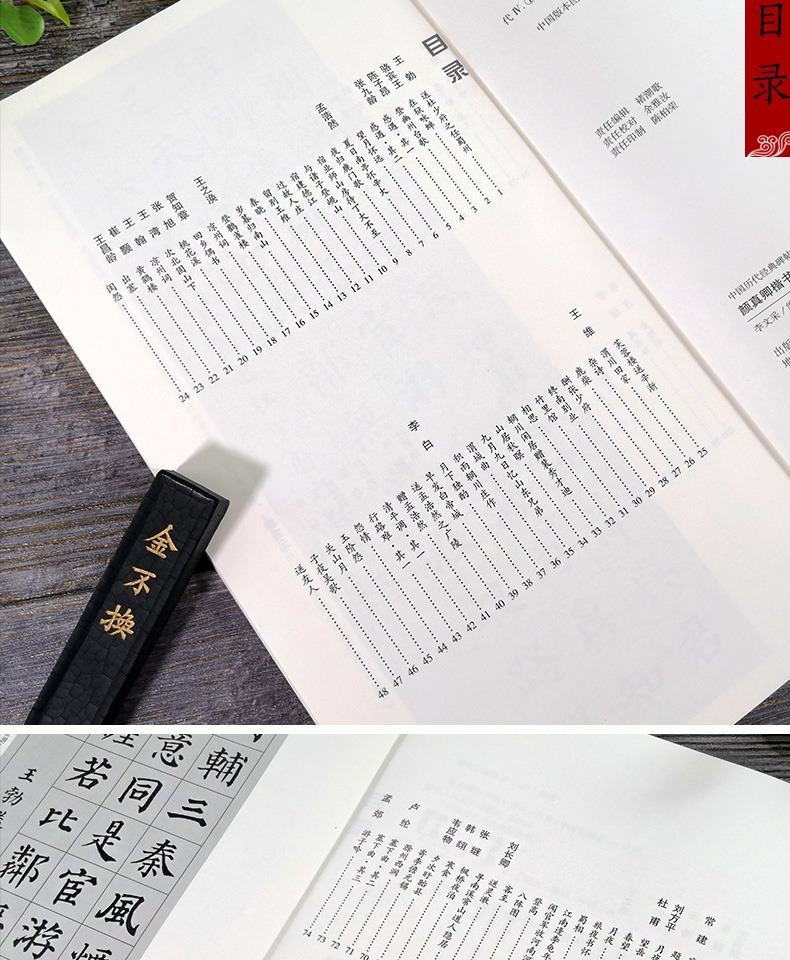 目录
代 Ⅳ.
中国版本图
责任编辑 褚潮歌
责任校对 余雅汝
责任印制 陈柏荣
中国历代经典碑帖
颜真卿楷书
李文采 /
出版
地
目录
王勃 送杜少府之任蜀州 1
骆宾王 在狱咏蝉 2
陈子昂 登幽州台歌 3
张九龄 感遇·其一 4
感遇·其二 5
望月怀远 6
孟浩然 夏日南亭怀辛大 7
夜归鹿门歌 8
宿业师山房待丁大不至 9
与诸子登岘山 10
宿建德江 11
过故人庄 12
留别王维 13
春晓 14
岁暮归南山 15
王之涣 登鹳雀楼 16
凉州词 17
贺知章 回乡偶书 18
张旭 桃花溪 19
王湾 次北固山下 20
王翰 凉州词 21
崔颢 黄鹤楼 22
王昌龄 出塞 23
闺怨 24
芙蓉楼送辛渐 25
王维 渭川田家 26
杂诗 27
鹿柴 28
酬张少府 29
终南别业 30
竹里馆 31
相思 32
辋川闲居赠裴秀才迪 33
山居秋暝 34
九月九日忆山东兄弟 35
渭城曲 36
积雨辋川庄作 37
李白 月下独酌 38
早发白帝城 39
送孟浩然之广陵 40
赠孟浩然 41
清平调·其一 42
行路难·其一 43
怨情 44
玉阶怨 45
关山月 46
子夜吴歌 47
送友人 48
金不换
輔三秦風
意同是宦游
若比鄰
王勃
常建
刘方平 月夜
杜甫 望岳
春望
月夜
旅夜书怀
蜀相
江南逢李龟年
闻官军收河南河
登高
八阵图
客至
刘长卿 送灵澈
寻南溪常山道人隐居
张继 枫桥夜泊
韩翃 寒食
韦应物 夕次盱眙县
寄李儋元锡 70
滁州西涧 71
卢纶 塞下曲·其二 72
塞下曲·其三 73
孟郊 游子吟 74